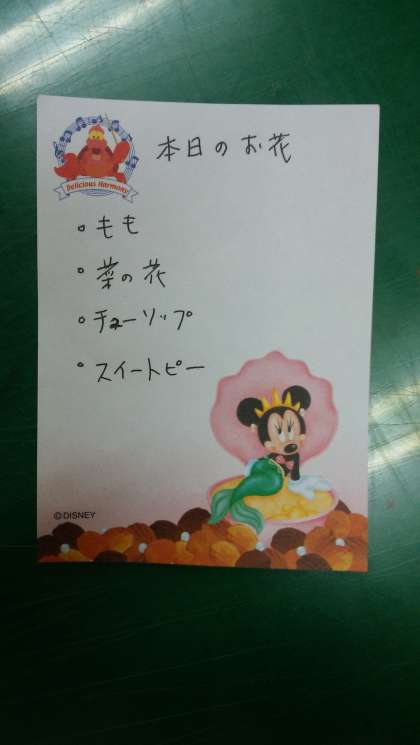 本日のお花
Delicious Harmony
。もも
。菜の花
。チューリップ
。スイートピー
©DISNEY